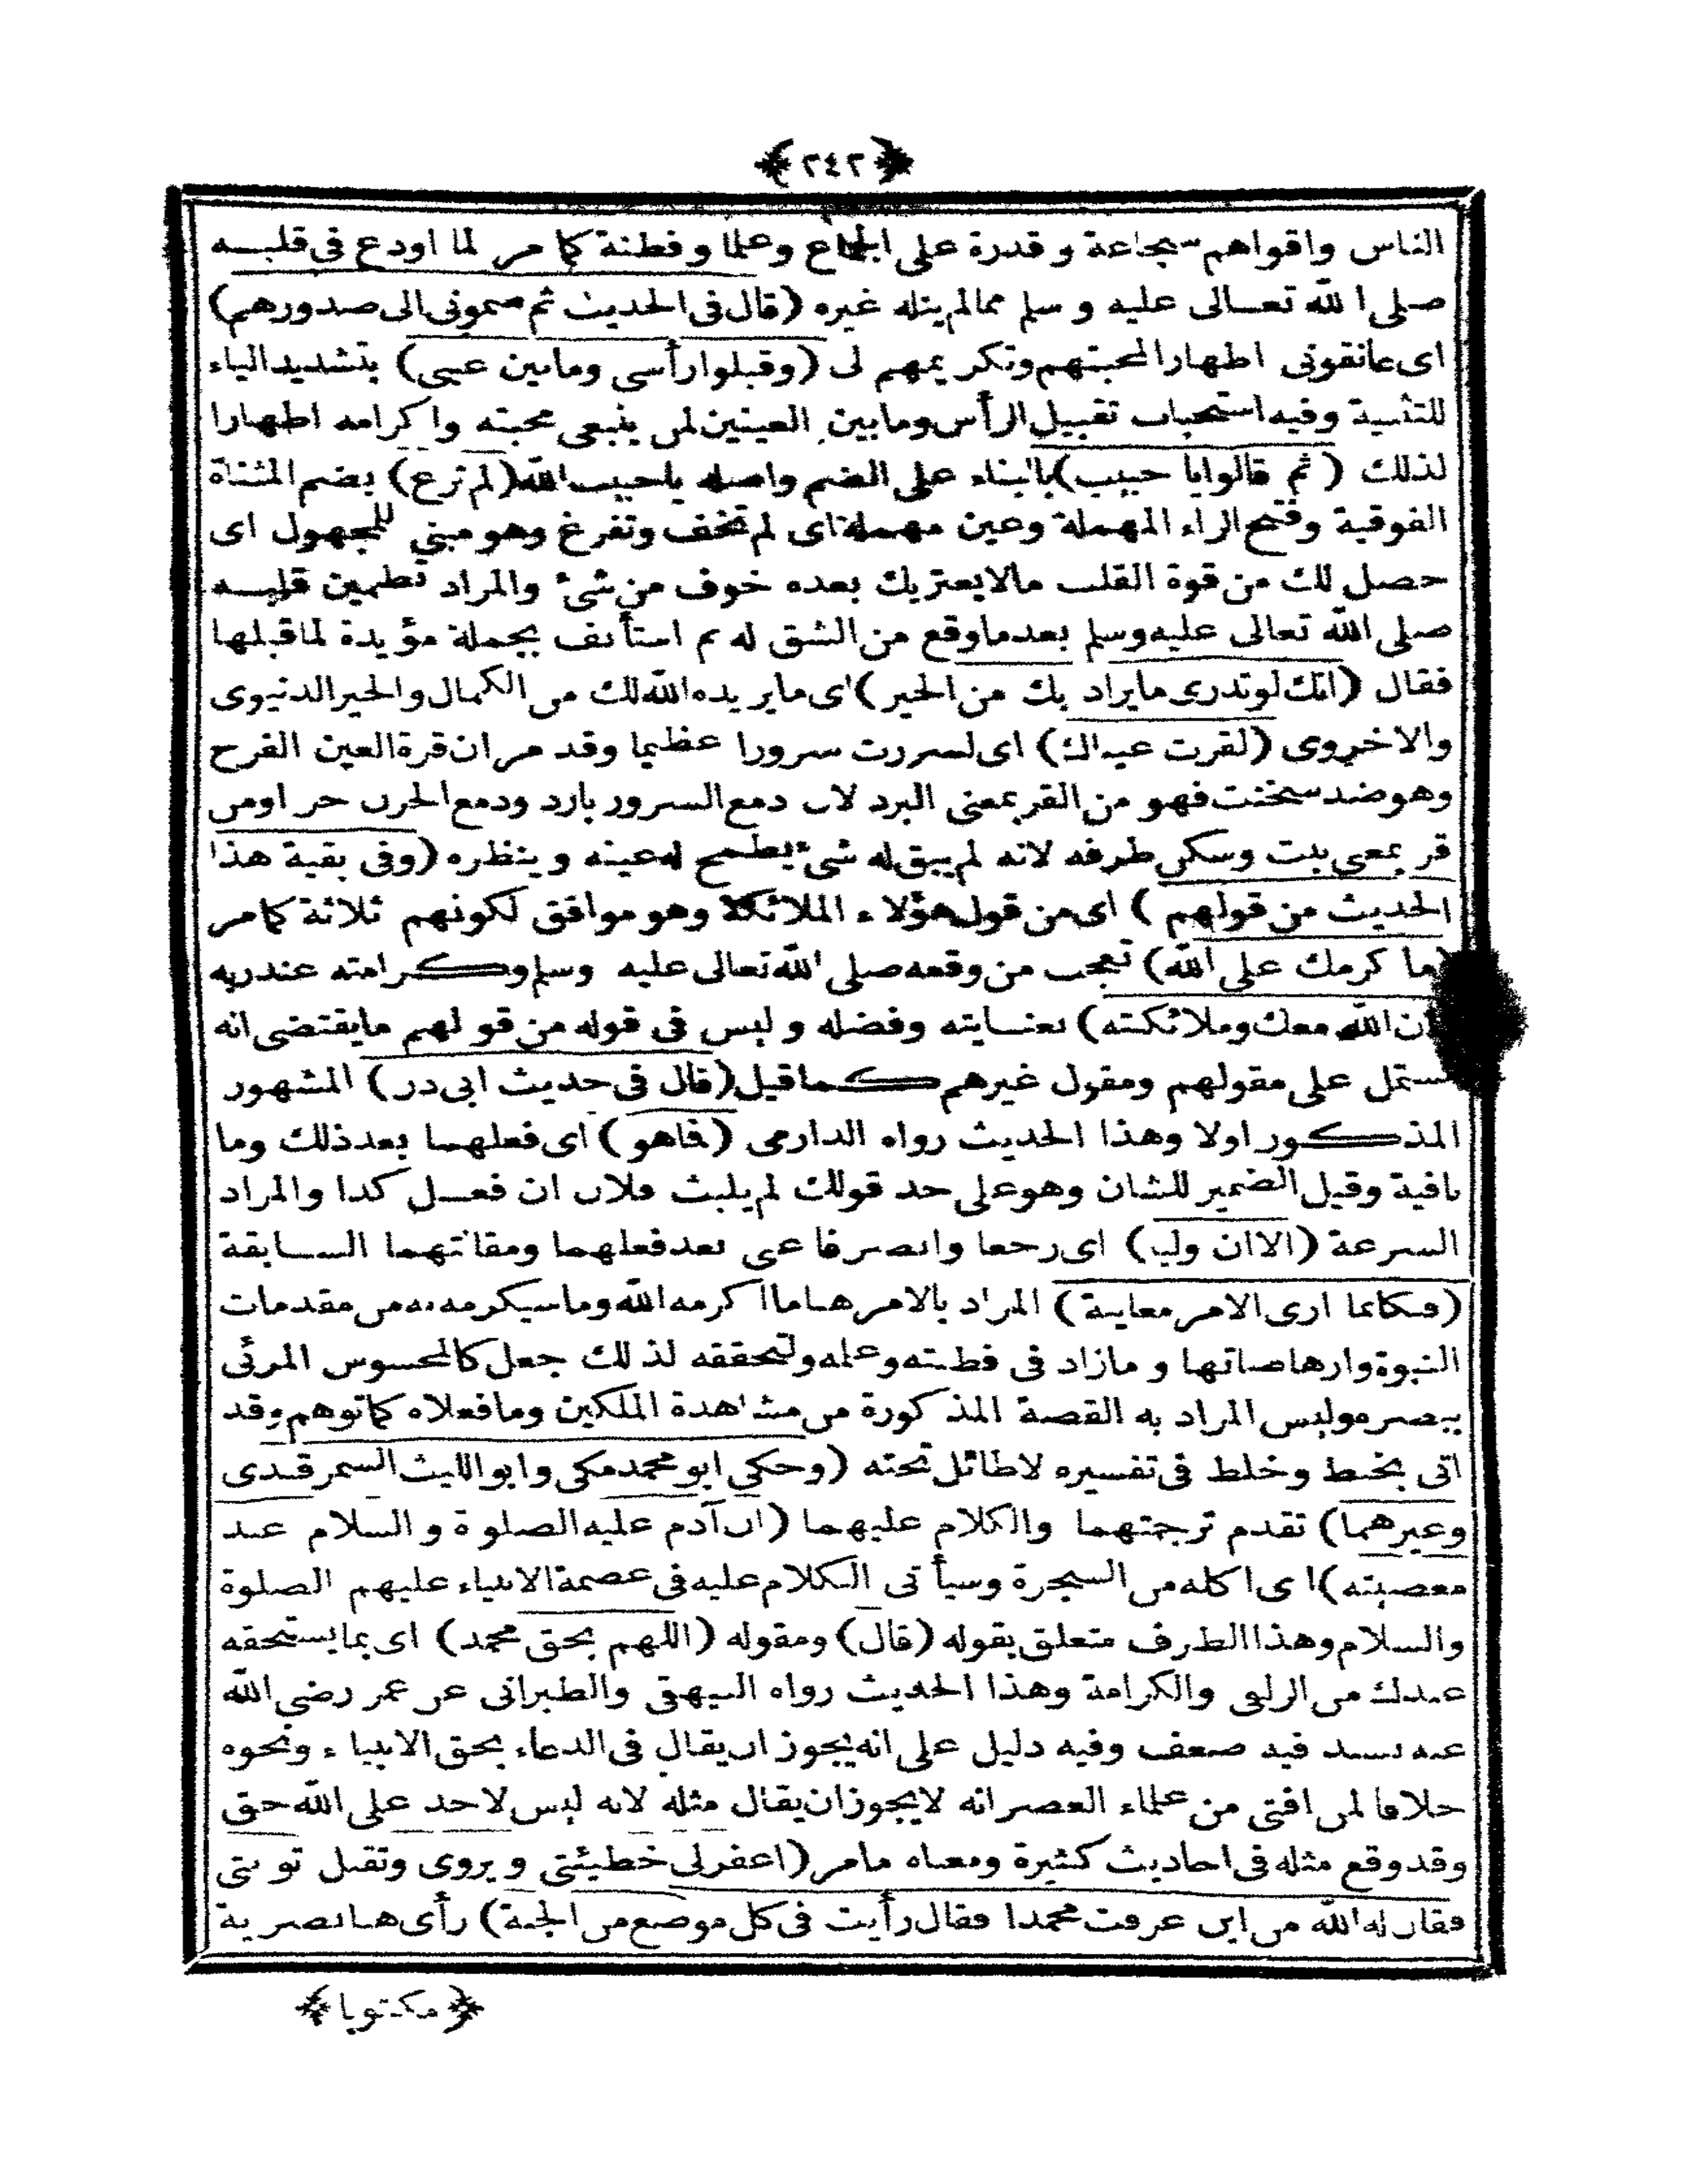 ﴿٢٤٢﴾
الناس واقواهم شجاعة وقدرة على الجماع وعلما وفطنة كما مر لما اودع فى قلبه
صلى الله تعالى عليه وسلم مما لم ينله غيره (قال فى الحديث ثم ضمونى الى صدورهم)
اى عانقونى اظهارا لمحبتهم وتكريمهم لى (وقبلوا رأسى وما بين عينى) بتشديد الياء
للتثنية وفيه استحباب تقبيل الرأس وما بين العينين لمن ينبغى محبته واكرامه اظهارا
لذلك (ثم قالوا يا حبيب) بالبناء على الضم واصله يا حبيب الله (لم ترع) بضم المثناة
الفوقية وفتح الراء المهملة وعين مهملة اى لم تخف وتفزغ وهو مبنى للمجهول اى
حصل لك من قوة القلب مالا يعتريك بعده خوف من شئ والمراد تطمين قلبه
صلى الله تعالى عليه وسلم بعد ما وقع من الشق له ثم استأنف بجملة مؤيدة لما قبلها
فقال (انك لو تدرى ما يراد بك من الخير) اى ما يريده الله لك من الكمال والخير الدنيوى
والاخروى (لقرت عيناك) اى لسررت سرورا عظيما وقد مر ان قرة العين الفرح
وهو ضد سخنت فهو من القر بمعنى البرد لان دمع السرور بارد ودمع الحزن حر اومن
قر بمعنى بنت وسكن طرفه لانه لم يبق له شئ يطمح له عينه وينظره (وفى بقية هذا
الحديث من قولهم) اى من قول هؤلاء الملائكة وهو موافق لكونهم ثلاثة كما مر
(ما كرمك على الله) تعجب من وقعه صلى الله تعالى عليه وسلم وكرامته عند ربه
ان الله معك وملائكته) بعنايته وفضله وليس فى قوله من قولهم ما يقتضى انه
مشتمل على مقولهم ومقول غيرهم كما قيل (قال فى حديث ابى ذر) المشهور
المذكور اولا وهذا الحديث رواه الدارمى (فما هو) اى فعلهما بعد ذلك وما
نافية وقيل الضمير للشان وهو على حد قولك لم يلبث فلان ان فعل كذا والمراد
السرعة (الا ان وليا) اى رجعا وانصرفا عنى بعد فعلهما ومقالتهما السابقة
(فكانما ارى الامر معاينة) المراد بالامر هنا ما اكرمه الله وما سيكرمه به من مقدمات
النبوة وارهاصاتها وما زاد فى فطنته وعلمه ولتحققه لذلك جعل كالمحسوس المرئى
ببصره وليس المراد به القصة المذكورة من مشاهدة الملكين وما فعلاه كما توهم وقد
اتى بخبط وخلط فى تفسيره لا طائل تحته (وحكى ابو محمد مكى وابو الليث السمرقندى
وغيرهما) تقدم ترجمتهما والكلام عليهما (ان آدم عليه الصلوة والسلام عند
معصيته) اى اكله من الشجرة وسيأتى الكلام عليه فى عصمة الانبياء عليهم الصلوة
والسلام وهذا الظرف متعلق بقوله (قال) ومقوله (اللهم بحق محمد) اى بما يستحقه
عندك من الزلفى والكرامة وهذا الحديث رواه البيهقى والطبرانى عن عمر رضى الله
عنه بسند فيه ضعف وفيه دليل على انه يجوز ان يقال فى الدعاء بحق الانبياء ونحوه
خلافا لمن افتى من علماء العصر انه لا يجوز ان يقال مثله لانه ليس لاحد على الله حق
وقد وقع مثله فى احاديث كثيرة ومعناه ما مر (اغفر لى خطيئتى ويروى وتقبل توبتى
فقال له الله من اين عرفت محمدا فقال رأيت فى كل موضع من الجنة) رأى هنا بصرية
﴿مكتوبا﴾